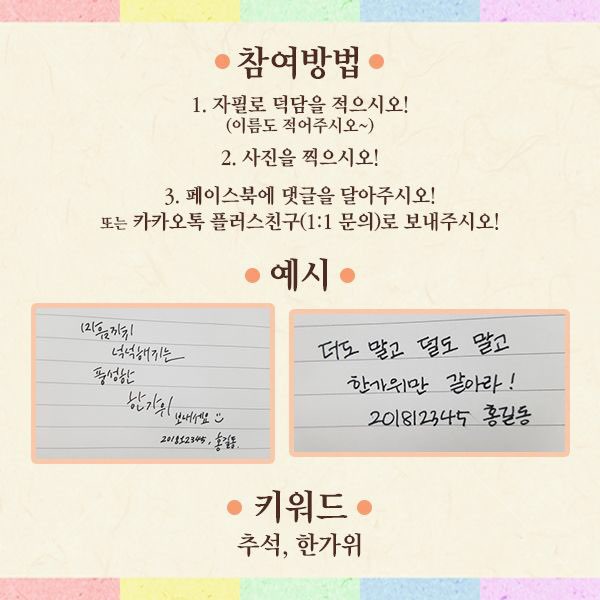 참여방법
1. 자필로 덕담을 적으시오!
(이름도 적어주시오~)
2. 사진을 찍으시오!
3. 페이스북에 댓글을 달아주시오!
또는 카카오톡 플러스친구(1:1 문의)로 보내주시오!
예시
마음까지
넉넉해지는
풍성한
한가위
보내세요
201812345. 홍길동.
더도 말고 덜도 말고
한가위만 같아라!
201812345 홍길동
키워드
추석, 한가위